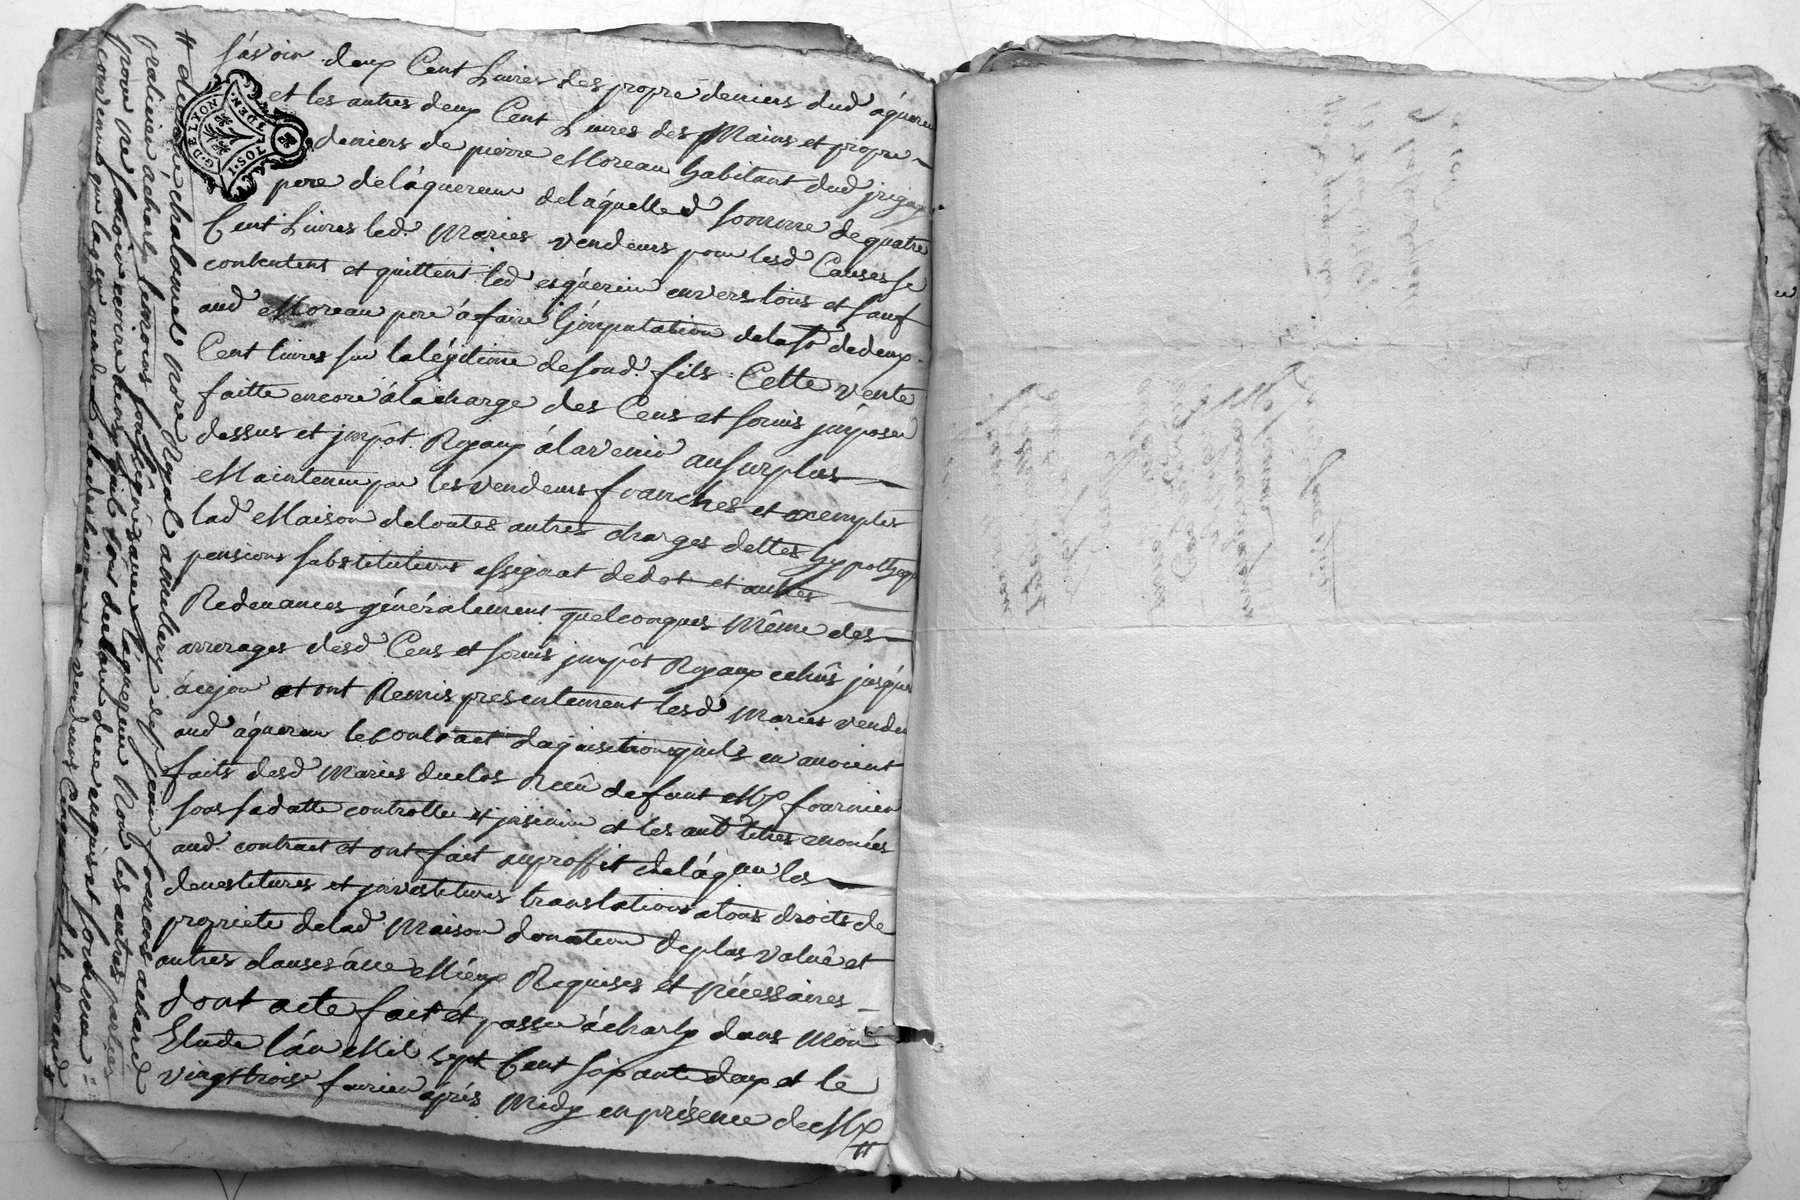 sçavoir deux Cent Livres des propre deniers dud aquereur
et les autres deux Cent Livres des Mains et propre
deniers de pierre Moreau habitant dud
pere de láquereur delaquelled somme de quatre
Cent Livres led. Mariés vendeurs pour lesd Causes se
contentent et quittent led aquereur envers tous et sauf
aud Moreau pere á faire l'jmputation dela so dedeux
Cent livres sur la légitime de sond. fils. Cette vente
faitte encore álacharge des Cens et servis jmposés
dessus et jmpôt Royaux álavenir ausurplus
Maintenue par les vendeurs franches et exemptes
lad Maison detoutes autres charges dettes hypotheq
pensions substitutions assignat dedot et autres
Redevances généralement quelconques Même des
arrerages desd Cens et servis jmpôt Royaux echûs jusques
áuejour et ont Remis presentement lesd Mariés vende
aud áquereur lecontract daquisition quils en avoient
faits desd Mariés duclos Reçû defunt Mx fournier
sous sadatte controllé et jnsinué et les autres titres enoncés
aud. contract et ont fait auproffit deláquer les
devestitures et jnvestitures translations atous droits de
proprieté delad Maison donation deplus valuë et
autres clauses áce Mieux Requises et nécessaires
dont acte fait et passé ácharly dans Mon
Etude l'án Mil sept Cent soixante deux et le
vingt trois fevrier áprés Midy en présence de Mx
#
# chatanel notre Royal et sr jean francois achard
praticien acharly temoins soussignés avec laquereur Non les autres parties
pour ne sçavoir ecrire ainsi quils ont declaré dece enquis et
convenu que vendeurs
G. DE LYON